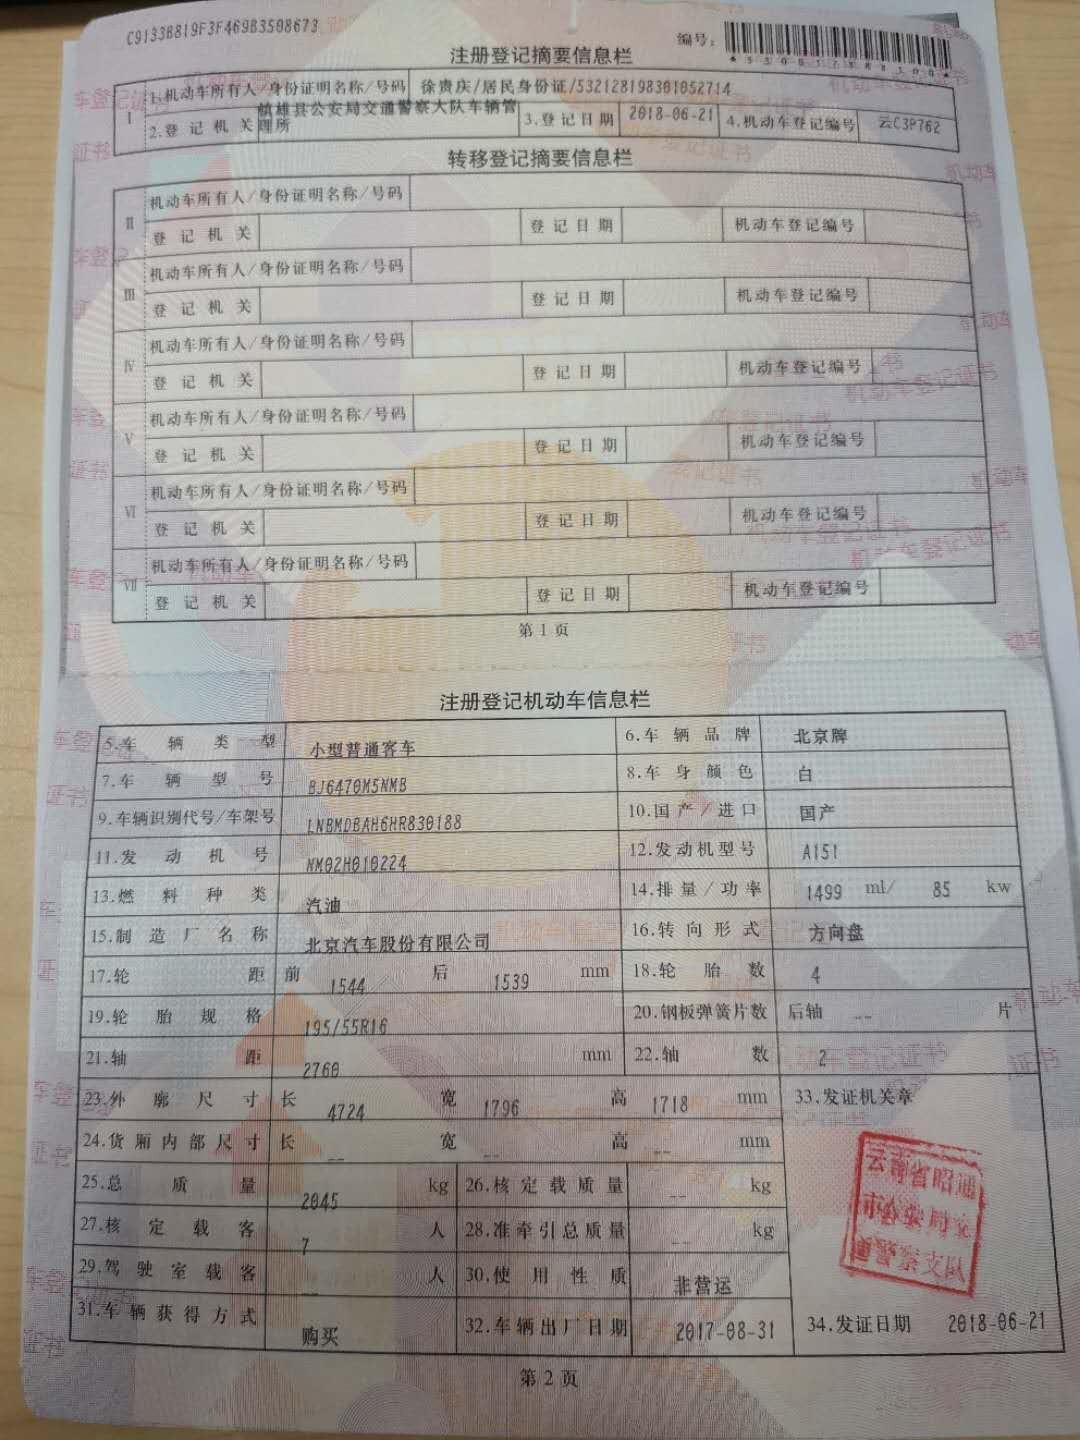 C9133B819F3F469B3508673
编号:
注册登记摘要信息栏
I
1.机动车所有人/身份证明名称/号码 徐贵庆/居民身份证/532128198301052714
2.登记机关 镇雄县公安局交通警察大队车辆管理所 3.登记日期 2018-06-21 4.机动车登记编号 云C3P762
转移登记摘要信息栏
II
机动车所有人/身份证明名称/号码
登记机关 登记日期 机动车登记编号
III
机动车所有人/身份证明名称/号码
登记机关 登记日期 机动车登记编号
IV
机动车所有人/身份证明名称/号码
登记机关 登记日期 机动车登记编号
V
机动车所有人/身份证明名称/号码
登记机关 登记日期 机动车登记编号
VI
机动车所有人/身份证明名称/号码
登记机关 登记日期 机动车登记编号
VII
机动车所有人/身份证明名称/号码
登记机关 登记日期 机动车登记编号
第1页
注册登记机动车信息栏
5.车辆类型 小型普通客车 6.车辆品牌 北京牌
7.车辆型号 BJ6470M5NMB 8.车身颜色 白
9.车辆识别代号/车架号 LNBMDBAH6HR830188 10.国产/进口 国产
11.发动机号 NM02H010224 12.发动机型号 A151
13.燃料种类 汽油 14.排量/功率 1499 ml/ 85 kw
15.制造厂名称 北京汽车股份有限公司 16.转向形式 方向盘
17.轮距 前 1544 后 1539 mm 18.轮胎数 4
19.轮胎规格 195/55R16 20.钢板弹簧片数 后轴 -- 片
21.轴距 2760 mm 22.轴数 2
23.外廓尺寸 长 4724 宽 1796 高 1718 mm 33.发证机关章
24.货厢内部尺寸 长 -- 宽 -- 高 -- mm
25.总质量 2045 kg 26.核定载质量 -- kg
27.核定载客 7 人 28.准牵引总质量 -- kg
29.驾驶室载客 -- 人 30.使用性质 非营运
31.车辆获得方式 购买 32.车辆出厂日期 2017-08-31 34.发证日期 2018-06-21
云南省昭通
市公安局交
通警察支队
第2页